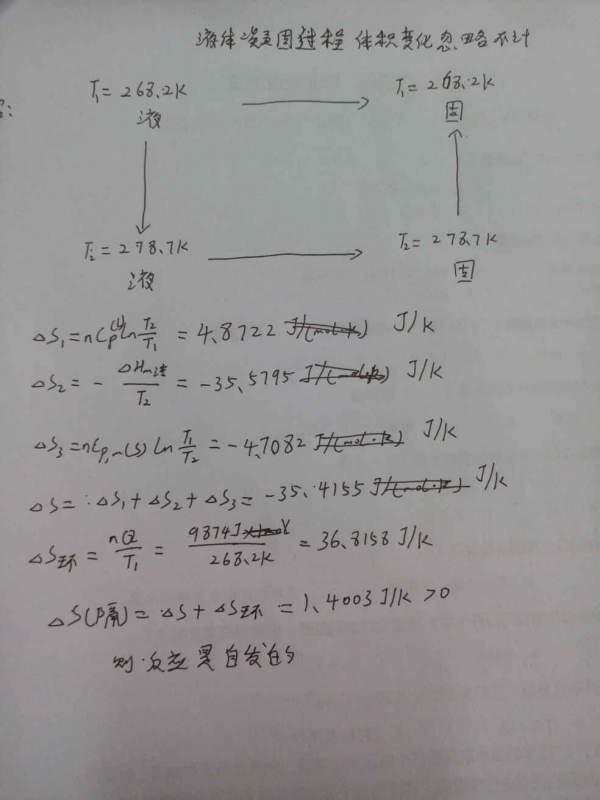 液体凝固过程 体积变化忽略不计
T₁=268.2K → T₁=268.2K
液 固
T₂=278.7K → T₂=278.7K
液 固
ΔS₁=nCp(l)ln T₂/T₁ = 4.8722 J/(mol·k) J/K
ΔS₂= - /T₂ = -35.5795 J/K
ΔS₃=nCp,m(s) ln T₁/T₂ = -4.7082 J/(mol·k) J/K
ΔS= ΔS₁+ΔS₂+ΔS₃= -35.4155 J/(mol·k) J/K
ΔS环 = nQ/T₁ = 9874J/268.2K = 36.8158 J/K
ΔS(隔)= ΔS+ΔS环 =1.4003J/K >0
则反应是自发的